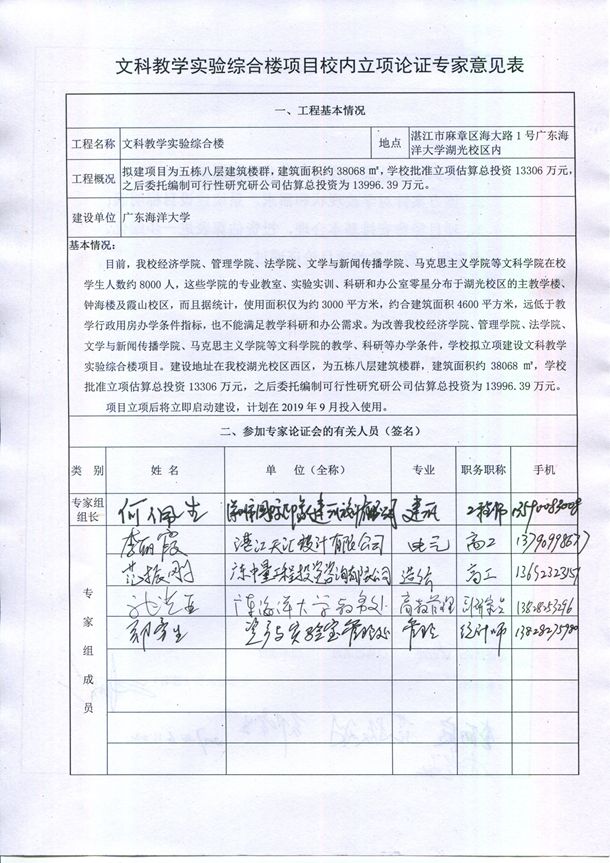 文科教学实验综合楼项目校内立项论证专家意见表
一、工程基本情况
工程名称 文科教学实验综合楼 地点 湛江市麻章区海大路1号广东海
洋大学湖光校区内
工程概况 拟建项目为五栋八层建筑楼群，建筑面积约38068㎡，学校批准立项估算总投资13306万元，
之后委托编制可行性研究研公司估算总投资为13996.39万元。
建设单位 广东海洋大学
基本情况：
目前，我校经济学院、管理学院、法学院、文学与新闻传播学院、马克思主义学院等文科学院在校
学生人数约8000人，这些学院的专业教室、实验实训、科研和办公室零星分布于湖光校区的主教学楼、
钟海楼及霞山校区，而且据统计，使用面积仅为约3000平方米，约合建筑面积4600平方米，远低于教
学行政用房办学条件指标，也不能满足教学科研和办公需求。为改善我校经济学院、管理学院、法学院、
文学与新闻传播学院、马克思主义学院等文科学院的教学、科研等办学条件，学校拟立项建设文科教学
实验综合楼项目。建设地址在我校湖光校区西区，为五栋八层建筑楼群，建筑面积约38068㎡，学校
批准立项估算总投资13306万元，之后委托编制可行性研究研公司估算总投资为13996.39万元。
项目立项后将立即启动建设，计划在2019年9月投入使用。
二、参加专家论证会的有关人员（签名）
类 别 姓 名 单 位（全称） 专业 职务职称 手机
专家组
组长 何佩生 建筑 工程师
李朝霞 湛江天汇设计有限公司 电气 高工
范振刚 广东中量工程投资咨询有限公司 造价 高工
广东海洋大学教务处 高教管理
资产与实验室管理处 管理 统计师
专家组成员